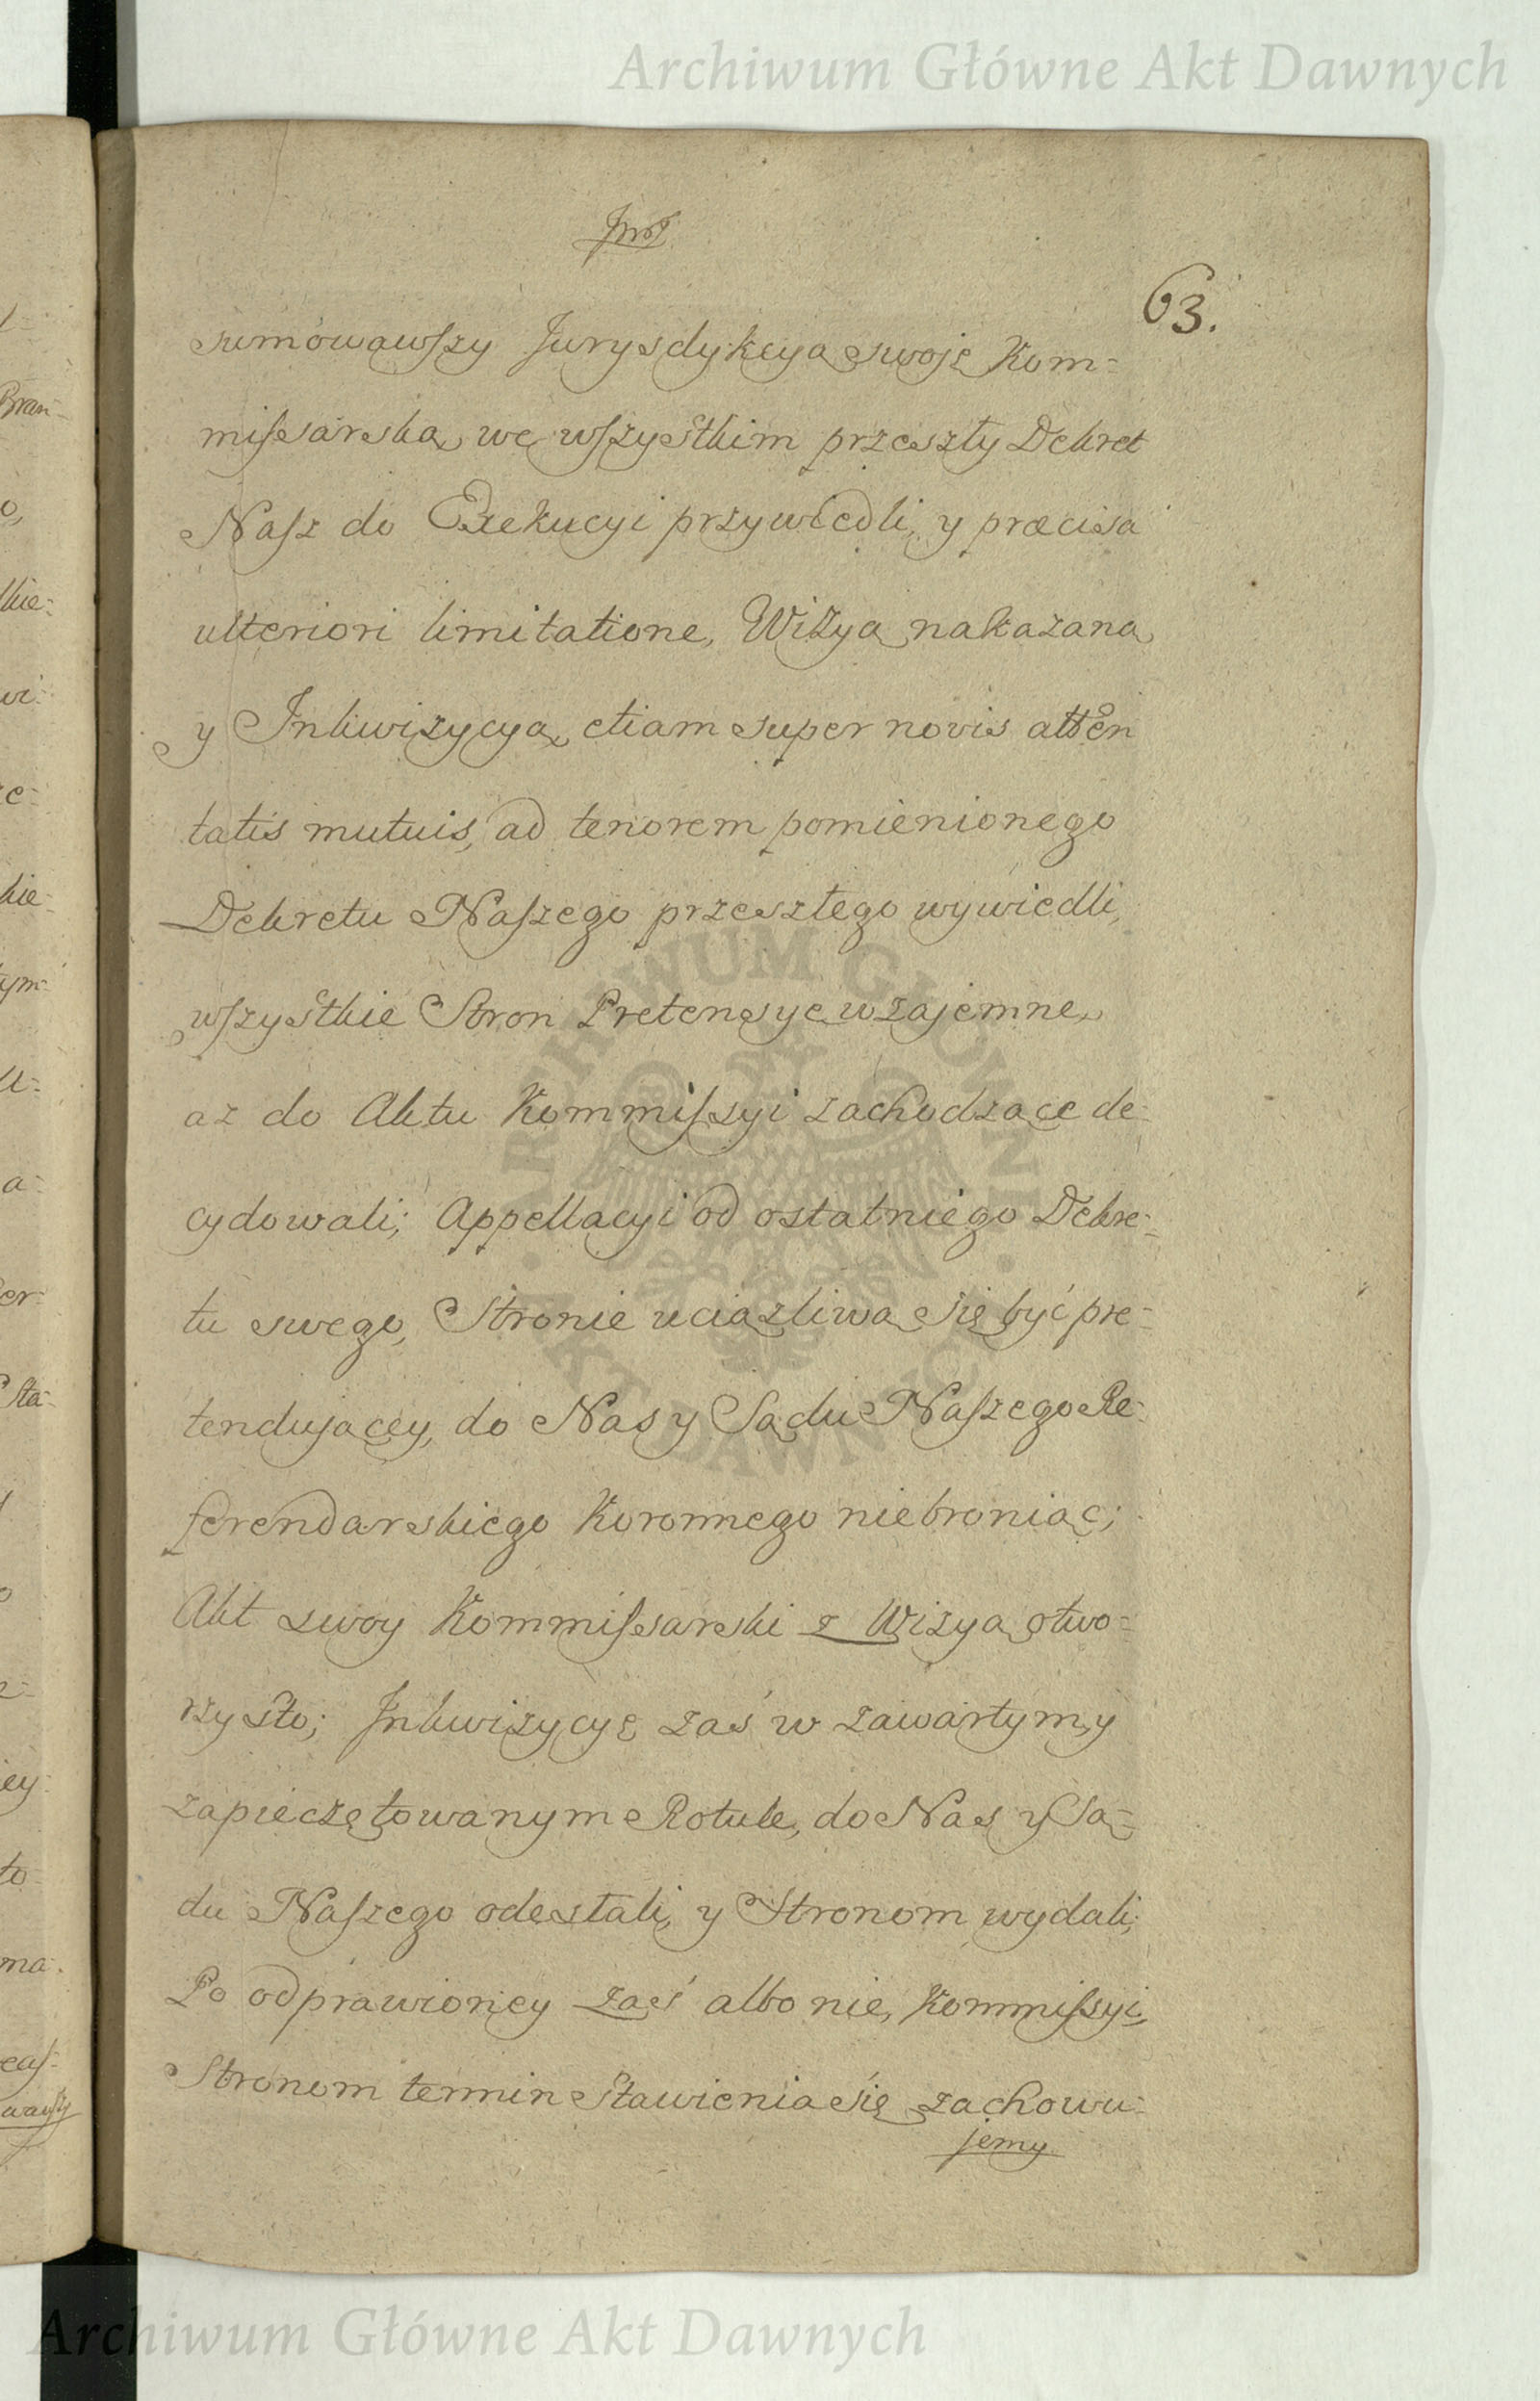 Archiwum Główne Akt Dawnych
63.
sumowawszy Jurysdykcyą swoję Kom=
missarską, we wszystkim przeszły Dekret
Nasz do Exekucyi przywiedli, y præcisa
ulteriori limitatione, Wizyą nakazaną
y Inkwizycyą, etiam super novis atten
tatis mutuis, ad tenorem pomienionego
Dekretu Naszego przeszłego wywiedli,
wszystkie Stron Pretensye wzajemne,
az do Aktu Kommissyi zachodzące de=
cydowali; Appellacyi od ostatniego Dekre=
tu swego, Stronie uciązliwą się być pre=
tendującey, do Nas y Sądu Naszego Re=
ferendarskiego Koronnego niebroniąc;
Akt swoy Kommissarski z Wizyą otwo=
rzysto; Inkwizycyę zaś w zawartym, y
zapieczętowanym Rotule, do Nas y Są=
du Naszego odesłali, y Stronom wydali;
Po odprawioney zaś albo nie, Kommissyi,
Stronom termin Stawienia się zachowu=
jemy
ARCHIWUM GŁÓWNE · AKT DAWNYCH ·
Archiwum Główne Akt Dawnych